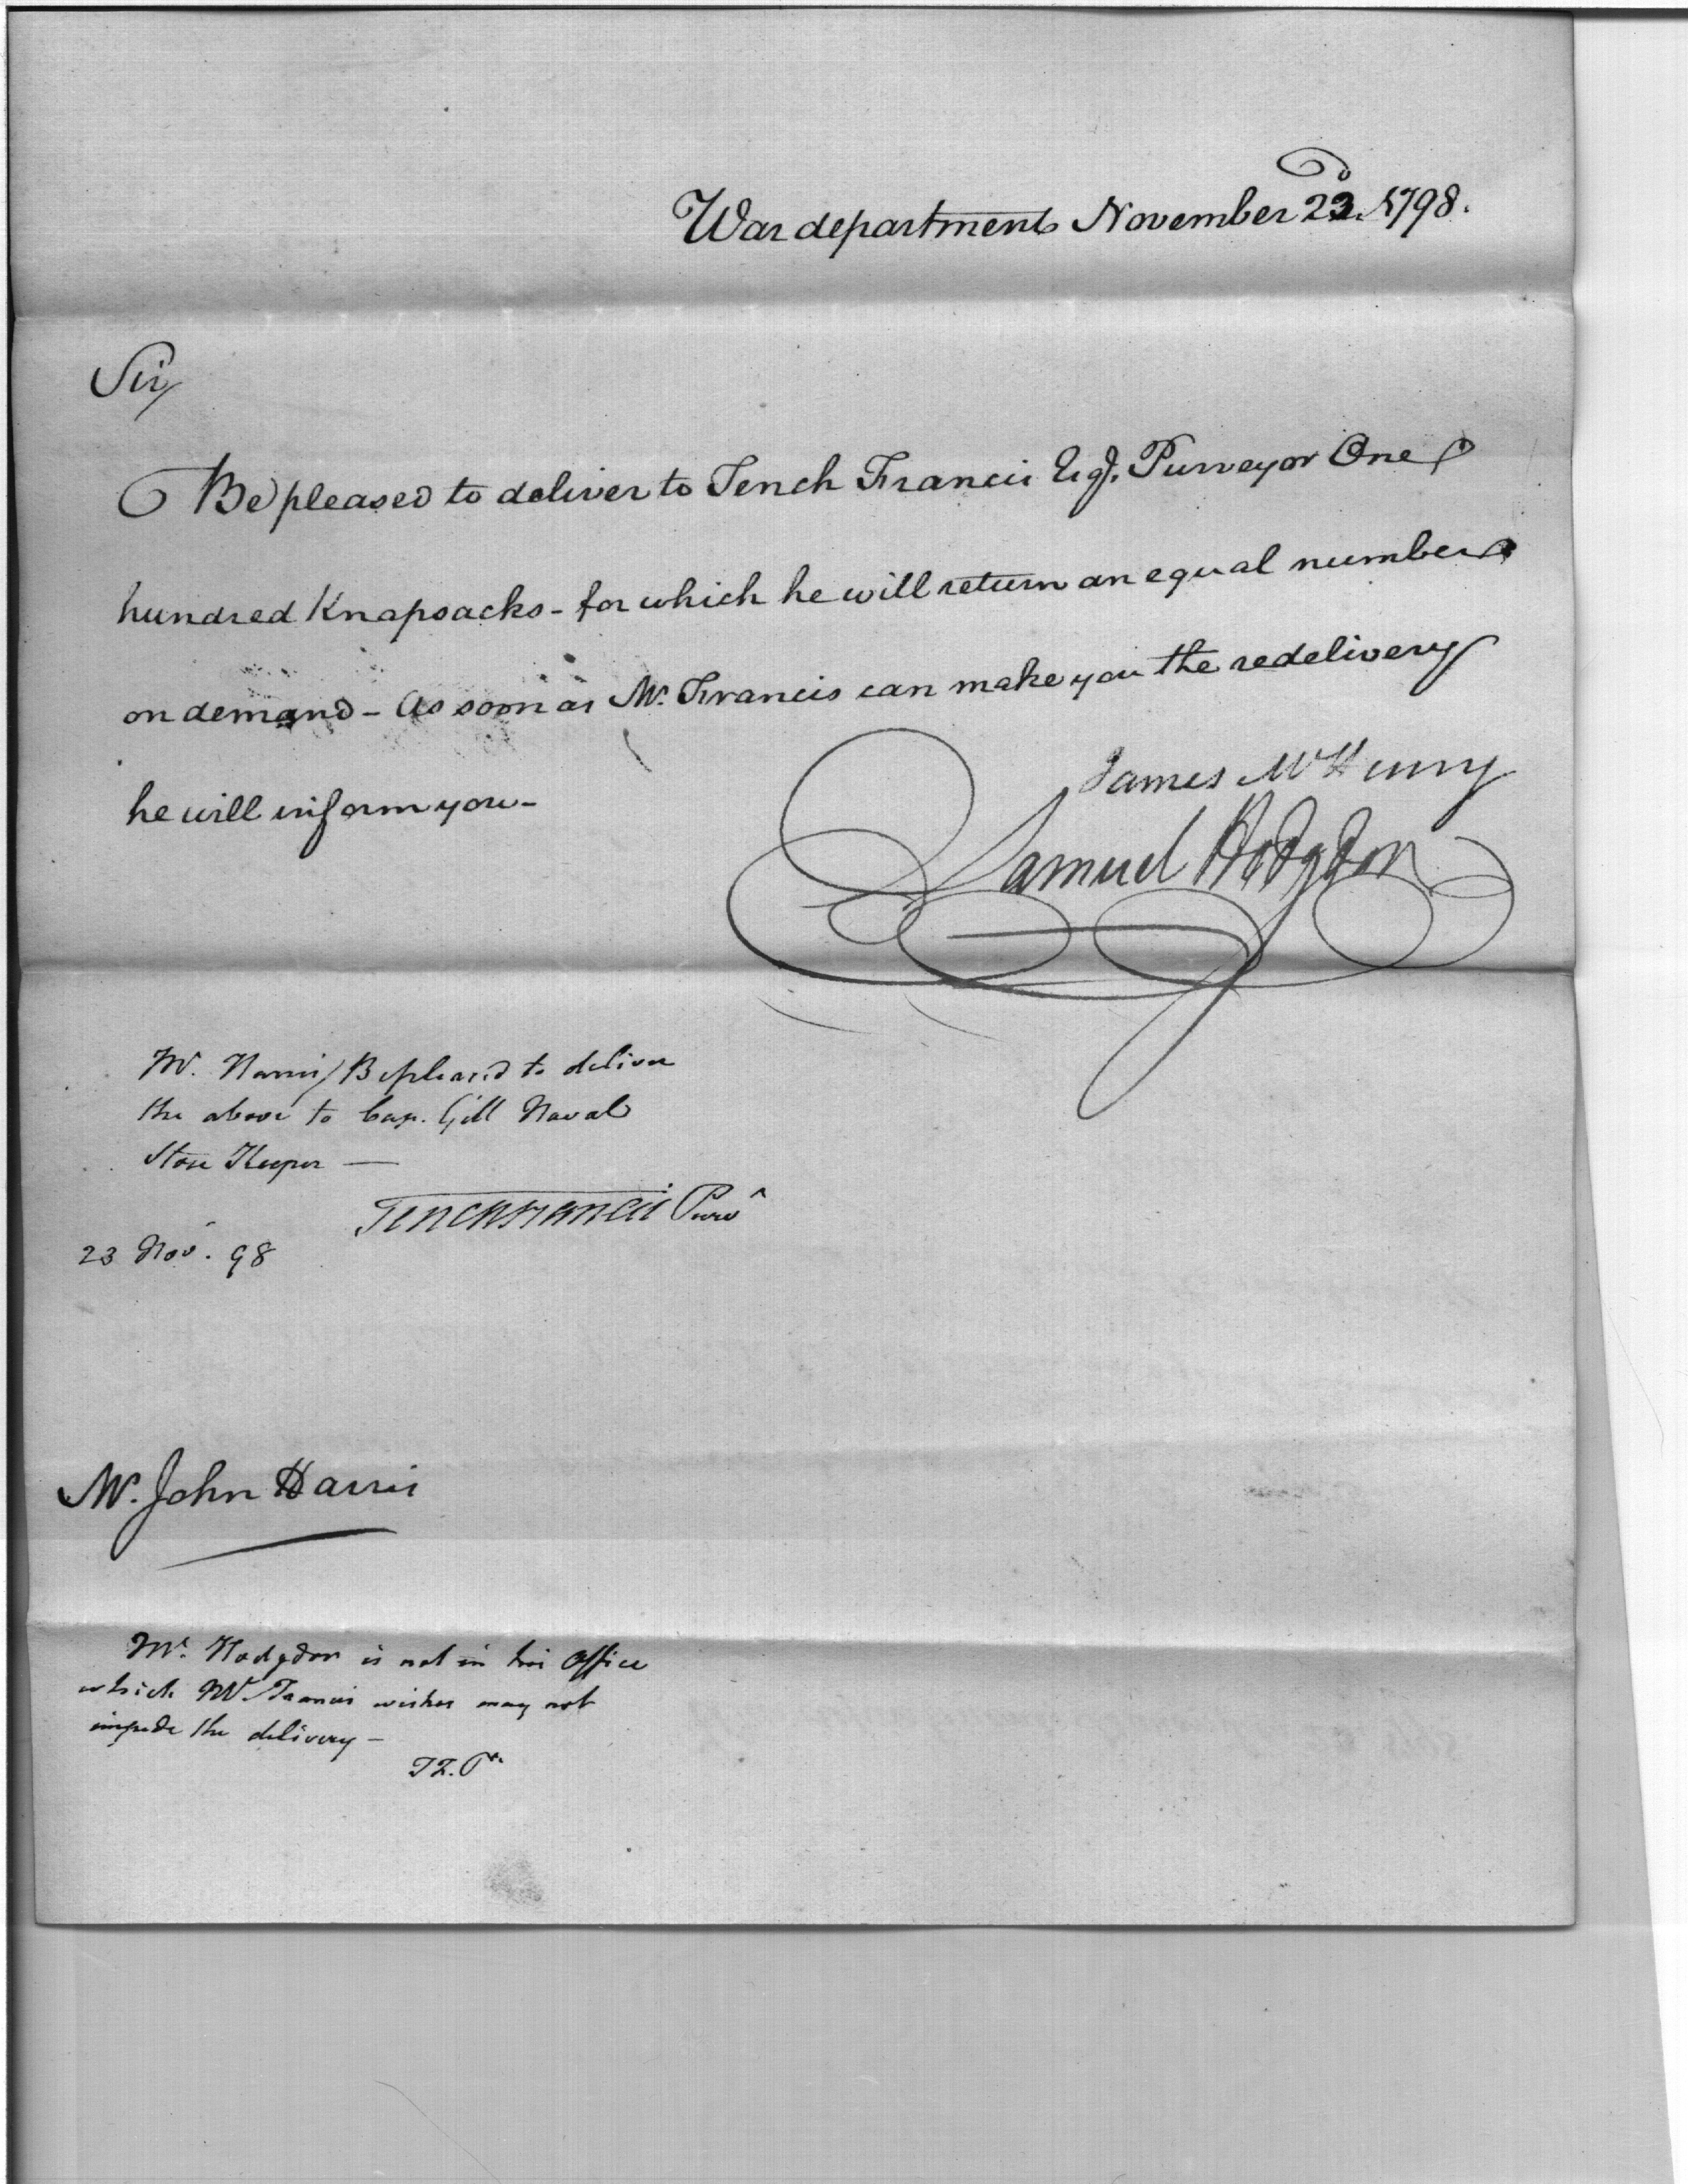 War department November 23d 1798.
Sir,
Be pleased to deliver to Tench Francis Esqr. Purveyor One
hundred Knapsacks - for which he will return an equal number
on demand - As soon as Mr. Francis can make you the redelivery
he will inform you -
James McHenry
Samuel Hodgdon
Mr. Harris / Be pleased to deliver
the above to Cap. Gill Naval
Store Keeper —
Tench Francis Purvr
23 Nov. 98
Mr. John Harris
Mr. Hodgdon is not in his Office
which Mr. Francis wishes may not
impede the delivery -
TF. Pr.